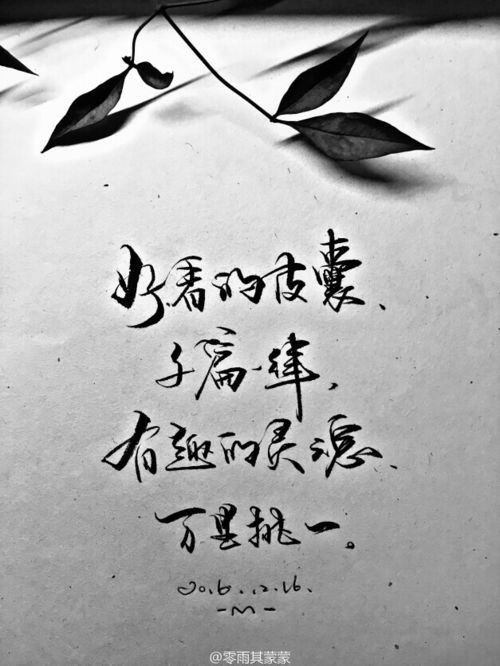 好看的皮囊、
千篇一律，
有趣的灵魂、
万里挑一。
2016.12.16.
-M-
@零雨其蒙蒙